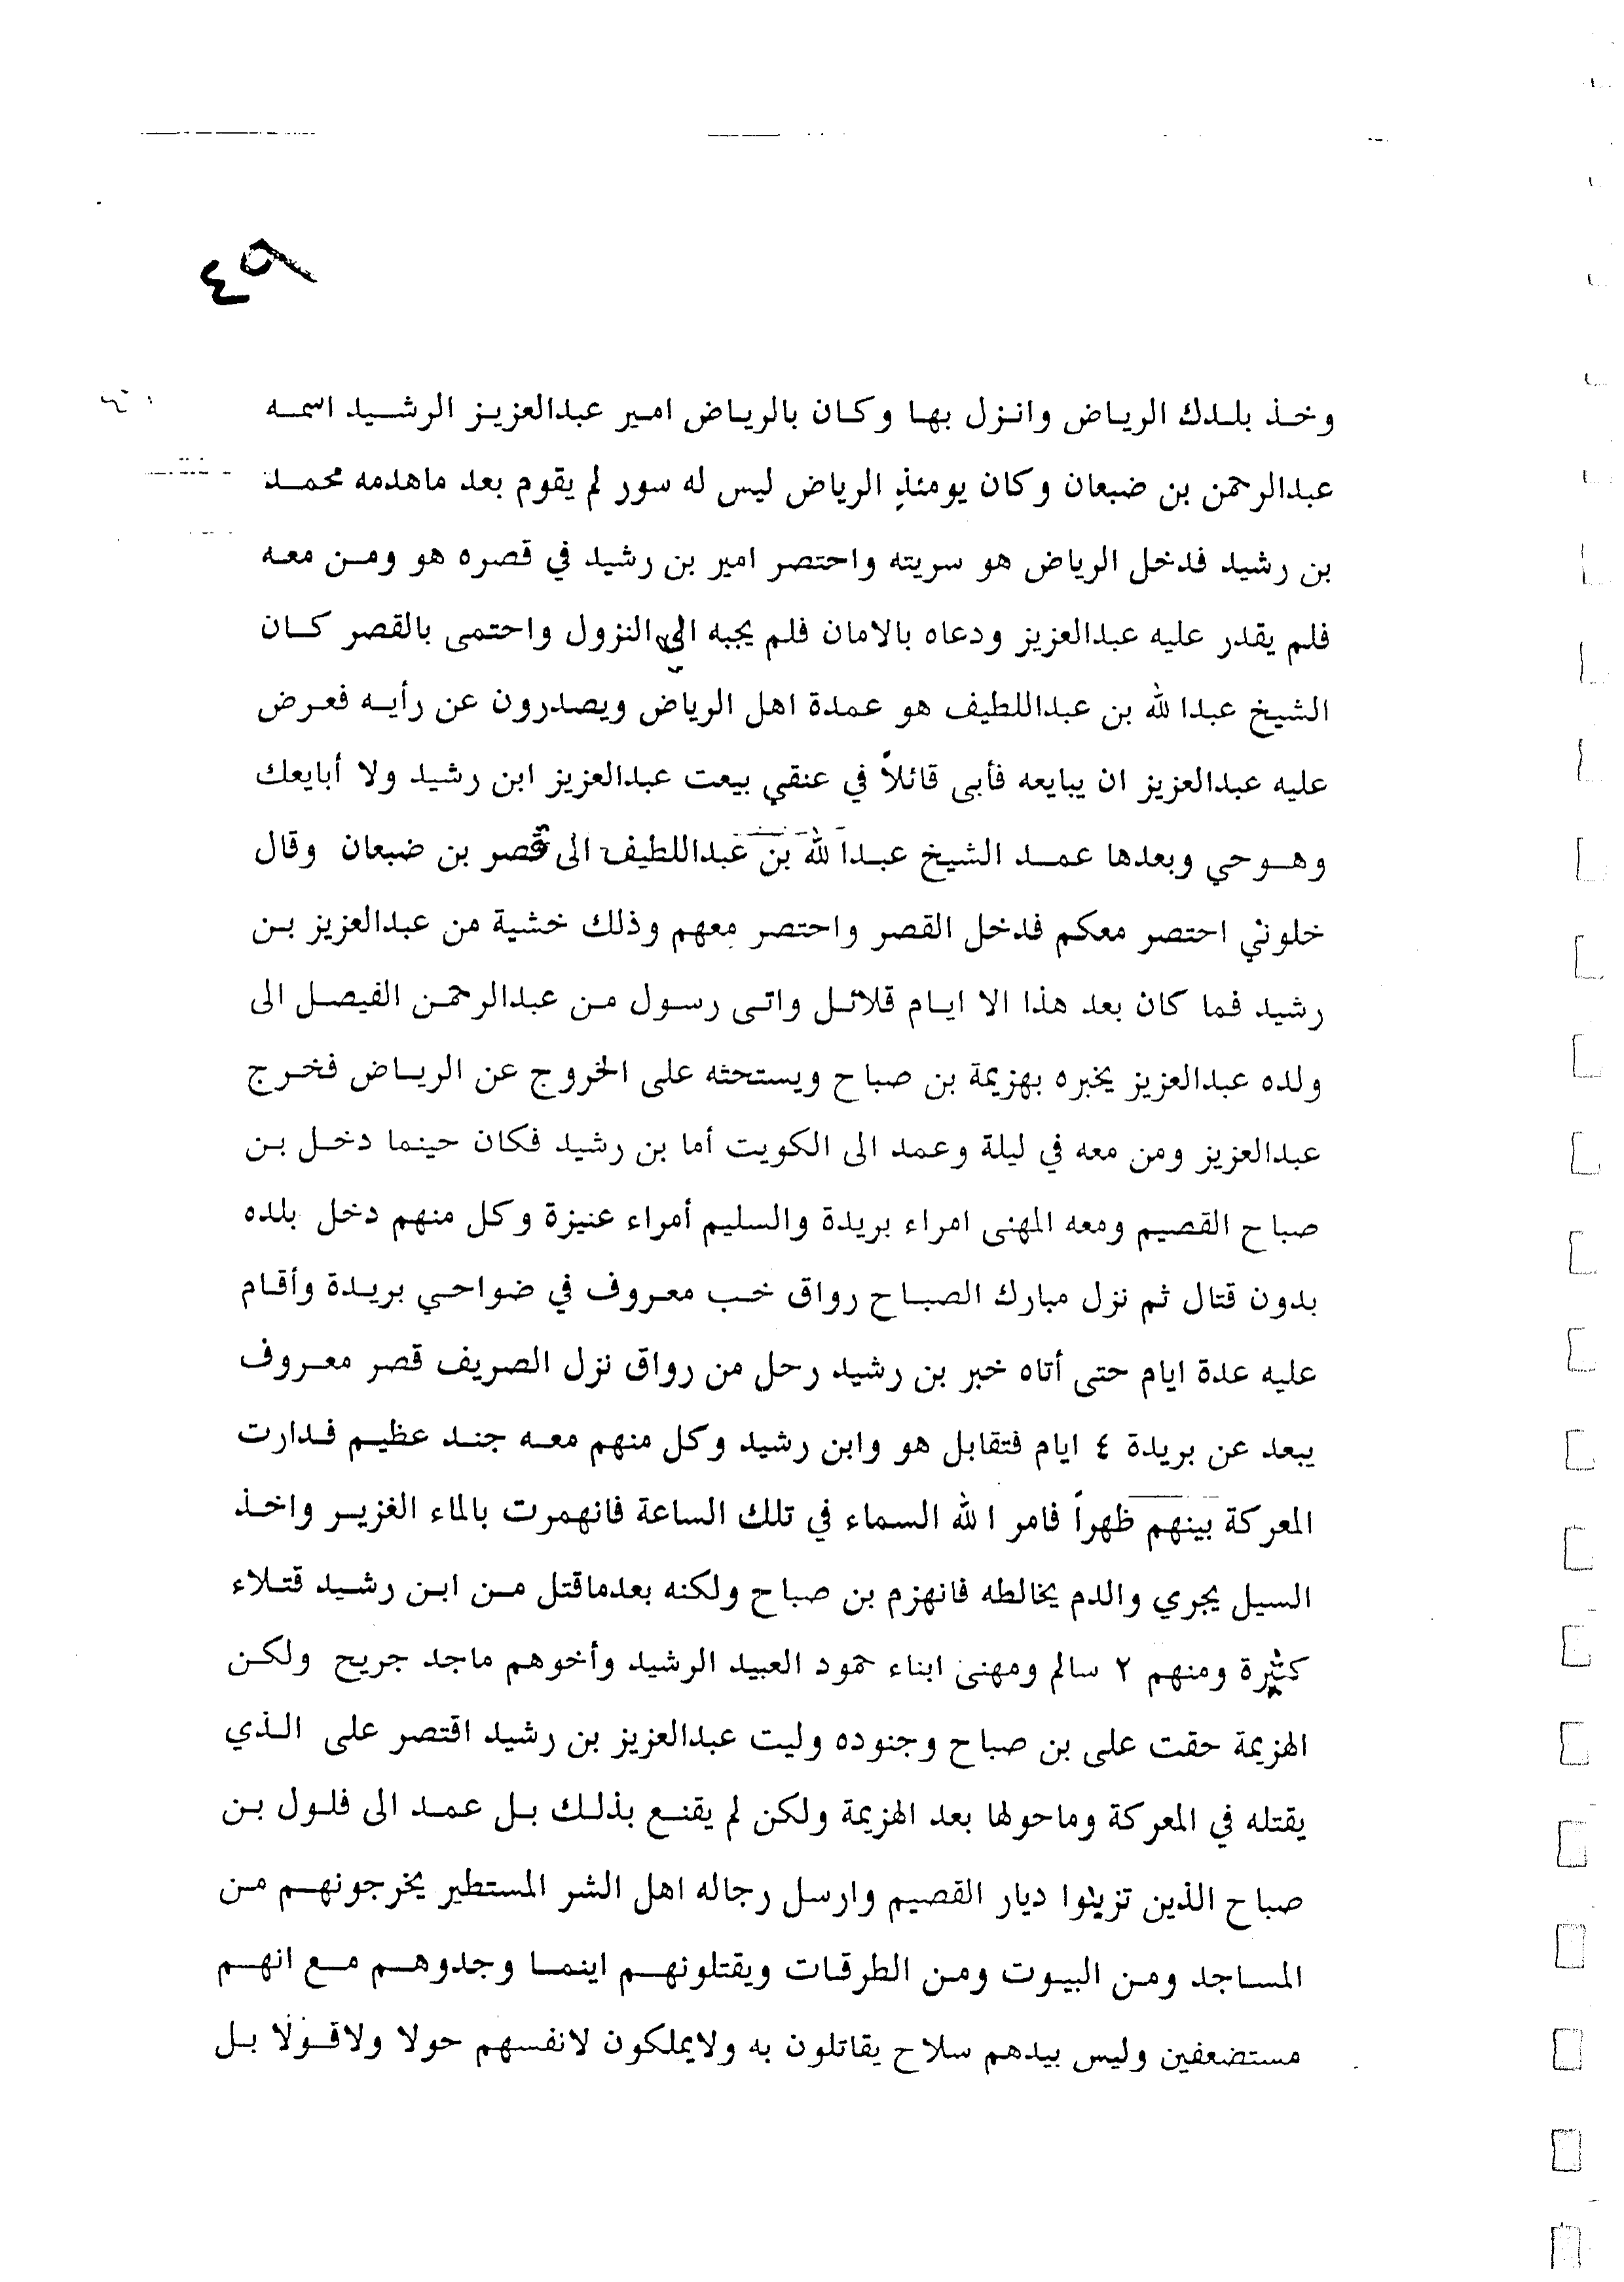 ٤٩
وخذ بلدك الرياض وانزل بها وكان بالرياض امير عبدالعزيز الرشيد اسمه
عبدالرحمن بن ضبعان وكان يومئذٍ الرياض ليس له سور لم يقوم بعد ماهدمه محمد
بن رشيد فدخل الرياض هو سريته واحتصر امير بن رشيد في قصره هو ومن معه
فلم يقدر عليه عبدالعزيز ودعاه بالامان فلم يجبه الى النزول واحتمى بالقصر كان
الشيخ عبدالله بن عبداللطيف هو عمدة اهل الرياض ويصدرون عن رأيه فعرض
عليه عبدالعزيز ان يبايعه فأبى قائلاً في عنقي بيعت عبدالعزيز ابن رشيد ولا أبايعك
وهوحي وبعدها عمد الشيخ عبدالله بن عبداللطيف الى قصر بن ضبعان وقال
خلوني احتصر معكم فدخل القصر واحتصر معهم وذلك خشية من عبدالعزيز بن
رشيد فما كان بعد هذا الا ايام قلائل واتى رسول من عبدالرحمن الفيصل الى
ولده عبدالعزيز يخبره بهزيمة بن صباح ويستحثه على الخروج عن الرياض فخرج
عبدالعزيز ومن معه في ليلة وعمد الى الكويت أما بن رشيد فكان حينما دخل بن
صباح القصيم ومعه المهنى امراء بريدة والسليم أمراء عنيزة وكل منهم دخل بلده
بدون قتال ثم نزل مبارك الصباح رواق خب معروف في ضواحي بريدة وأقام
عليه عدة ايام حتى أتاه خبر بن رشيد رحل من رواق نزل الصريف قصر معروف
يبعد عن بريدة ٤ ايام فتقابل هو وابن رشيد وكل منهم معه جند عظيم فدارت
المعركة بينهم ظهراً فامر الله السماء في تلك الساعة فانهمرت بالماء الغزير واخذ
السيل يجري والدم يخالطه فانهزم بن صباح ولكنه بعدماقتل من ابن رشيد قتلاء
كثيرة ومنهم ٢ سالم ومهنى ابناء حمود العبيد الرشيد وأخوهم ماجد جريح ولكن
الهزيمة حقت على بن صباح وجنوده وليت عبدالعزيز بن رشيد اقتصر على الذي
يقتله في المعركة وماحولها بعد الهزيمة ولكن لم يقنع بذلك بل عمد الى فلول بن
صباح الذين تزبنوا ديار القصيم وارسل رجاله اهل الشر المستطير يخرجونهم من
المساجد ومن البيوت ومن الطرقات ويقتلونهم اينما وجدوهم مع انهم
مستضعفين وليس بيدهم سلاح يقاتلون به ولايملكون لانفسهم حولا ولاقولا بل